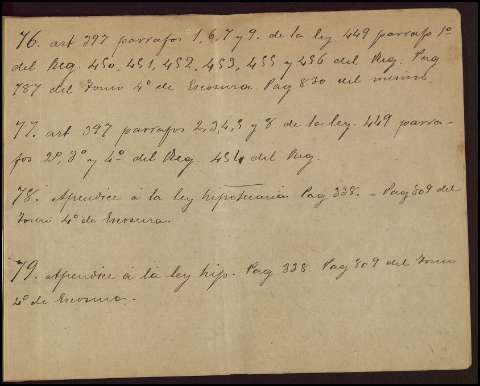 76. art 397 parrafos 1, 6, 7 y 9. de la ley 449 parrafo 1º
del Reg. 450, 451, 452, 453, 455 y 456 del Reg. Pag
787 del Tomo 4º de Escosura. Pag 830 del mismo
77. art 397 parrafos 2, 3, 4, 5 y 8 de la ley. 449 parra-
fos 2º, 3º y 4º del Reg. 454 del Reg.
78. Apendice á la ley hipotecaria Pag 338. - Pag 809 del
Tomo 4º de Escosura.
79. Apendice á la ley hip. Pag 338 Pag 809 del Tomo
4º de Escosura.